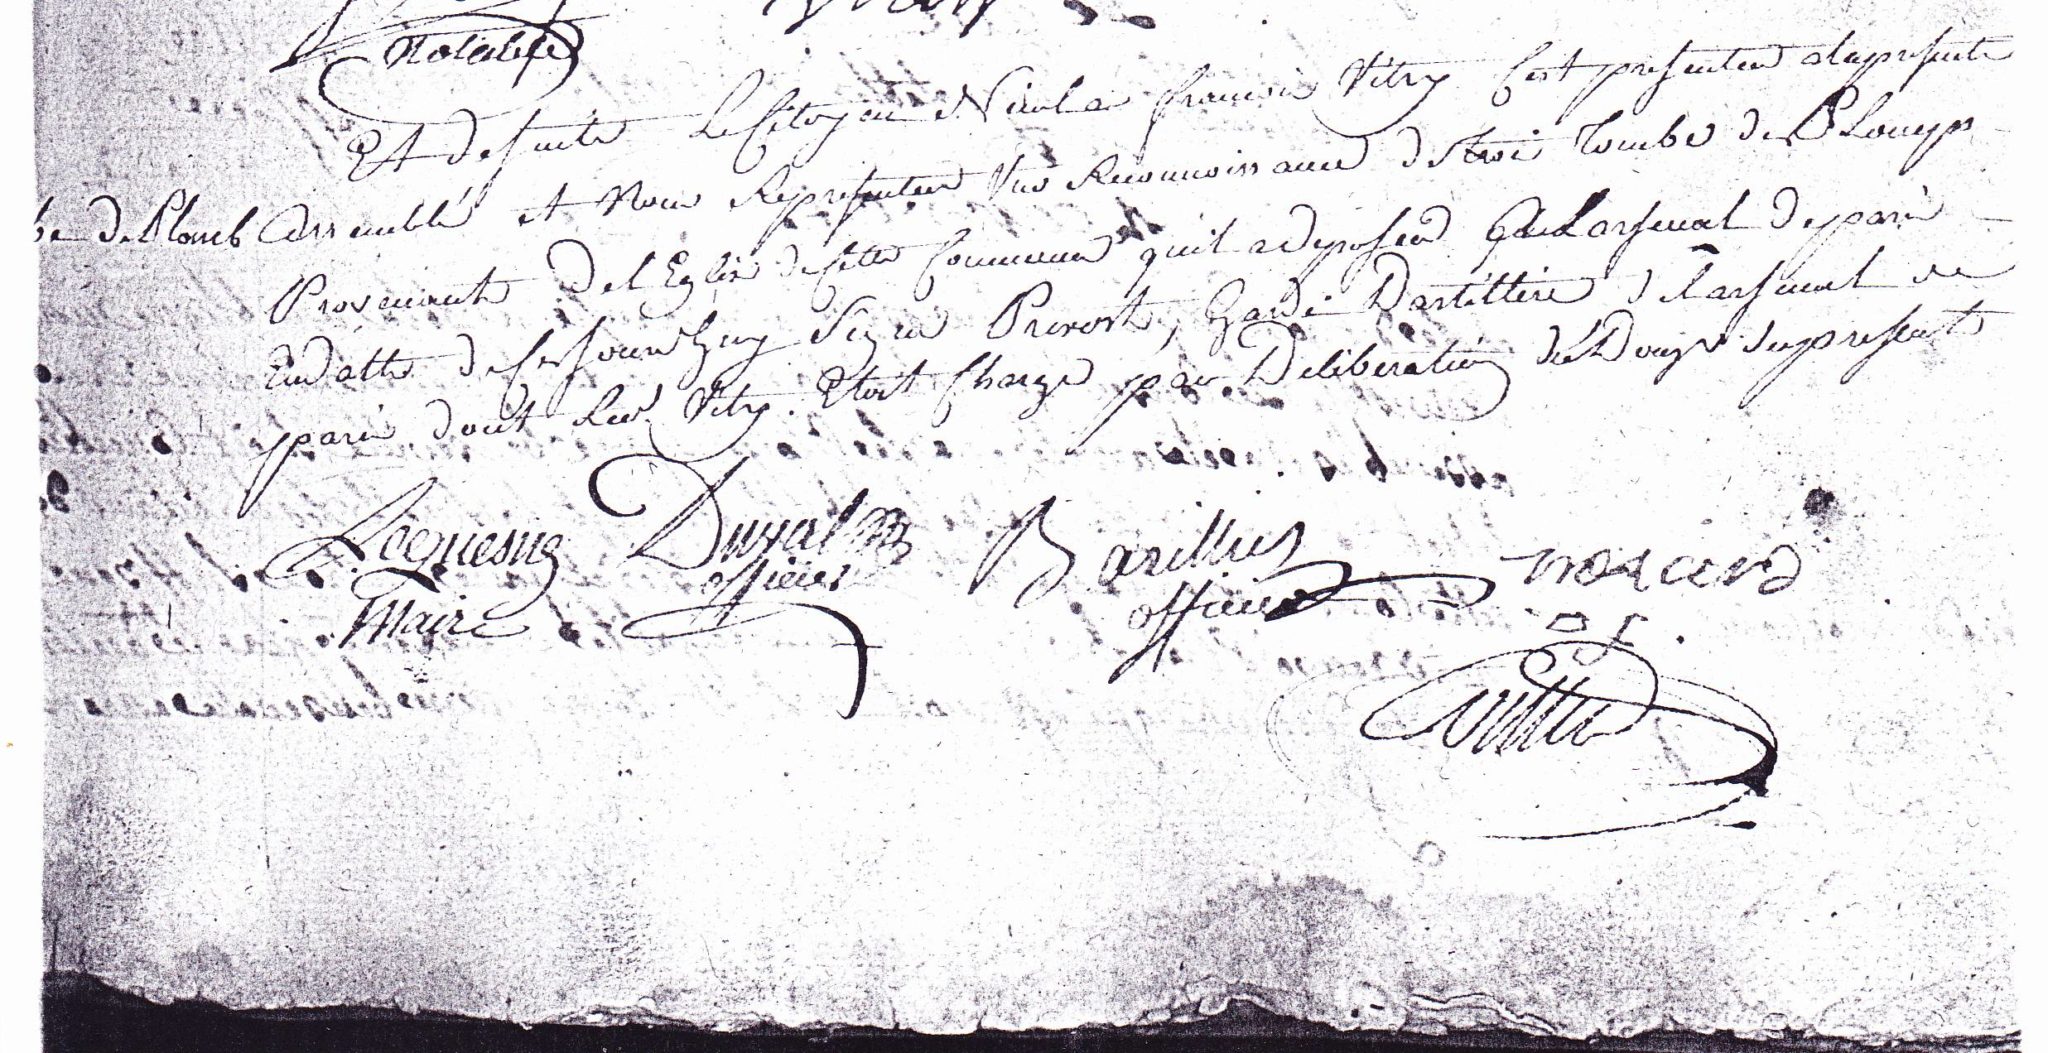 Notable
Et de suitte Le Citoyen Nicolas francois Vitry Cest presenter alapresente
be de Plomb
assemblée et Nous Representer Une Reconnoissance de trois Tombe de Plomp
Provenante de l'Eglise de Cette Commune quil a deposer a Larsenal de paris
Endatte de Ce jourdhuy Signé Prevost, Garde Dartillerie de larsenal de
paris dont Led. Vitry Etoit Chargé par Deliberation du Douze du present
Lequesne Duval Barillier
Maire officier officier